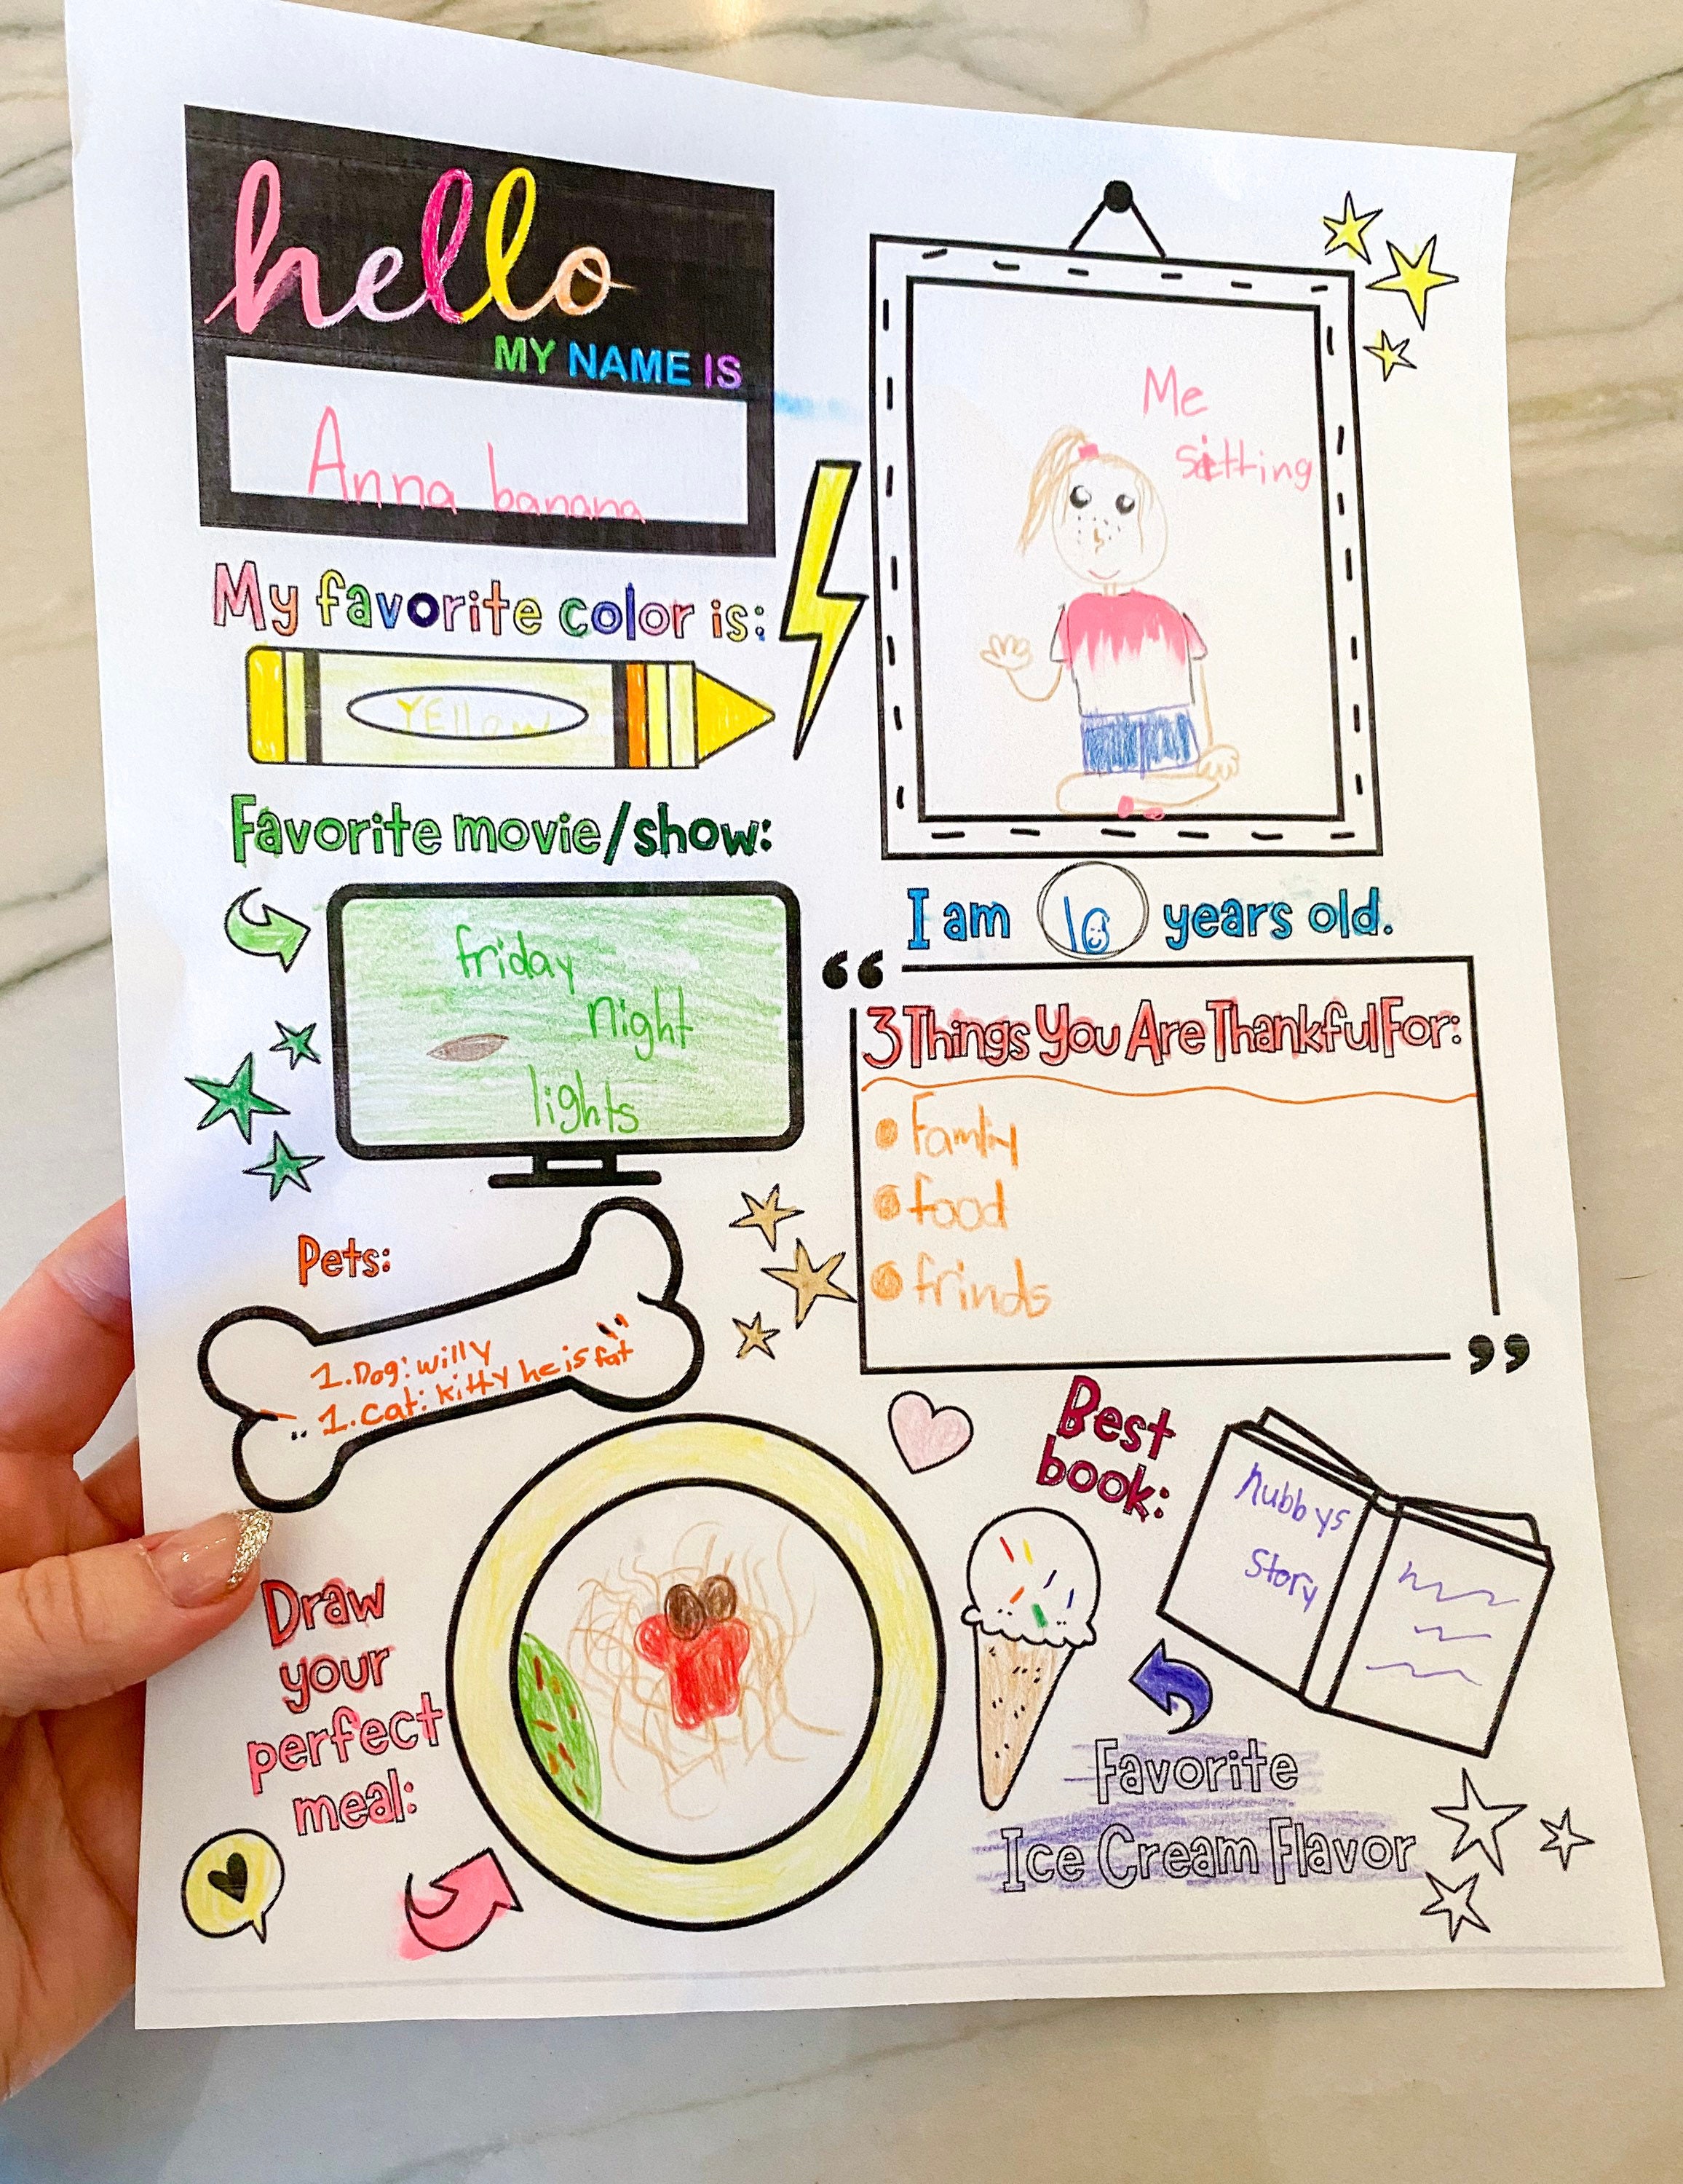 hello
MY NAME IS
Anna banana
Me
sitting
My favorite color is:
YEllow
Favorite movie/show:
friday
night
lights
I am 10 years old.
3 Things You Are Thankful For:
Family
food
frinds
Pets:
1. Dog: willy
1. cat: kitty he is fat
Best
book:
nubbys
Story
Draw
your
perfect
meal:
Favorite
Ice Cream Flavor